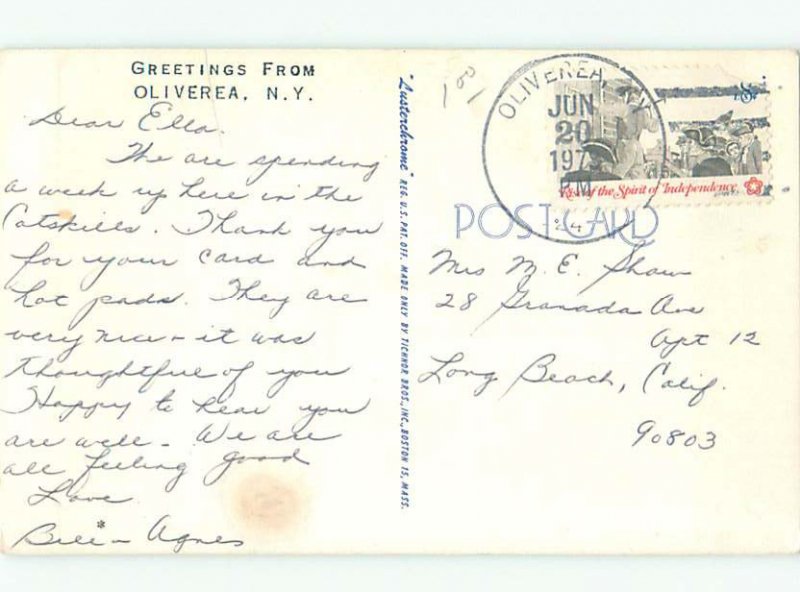 GREETINGS FROM
OLIVEREA, N.Y.
Dear Ella.
The are spending
a week up here in the
Catskills. Thank you
for your card and
hot pads. They are
very nice - it was
thoughtful of you
Happy to hear you
are well - We are
all feeling good
Love
Bill - Agnes
"Lusterchrome" REG. U.S. PAT. OFF. MADE ONLY BY TICHNOR BROS., INC., BOSTON 15, MASS.
OLIVEREA, N.Y.
JUN
20
197
8¢
Rise of the Spirit of Independence
POST CARD
Mrs M. E. Shaw
28 Granada Ave
Apt 12
Long Beach, Calif.
90803